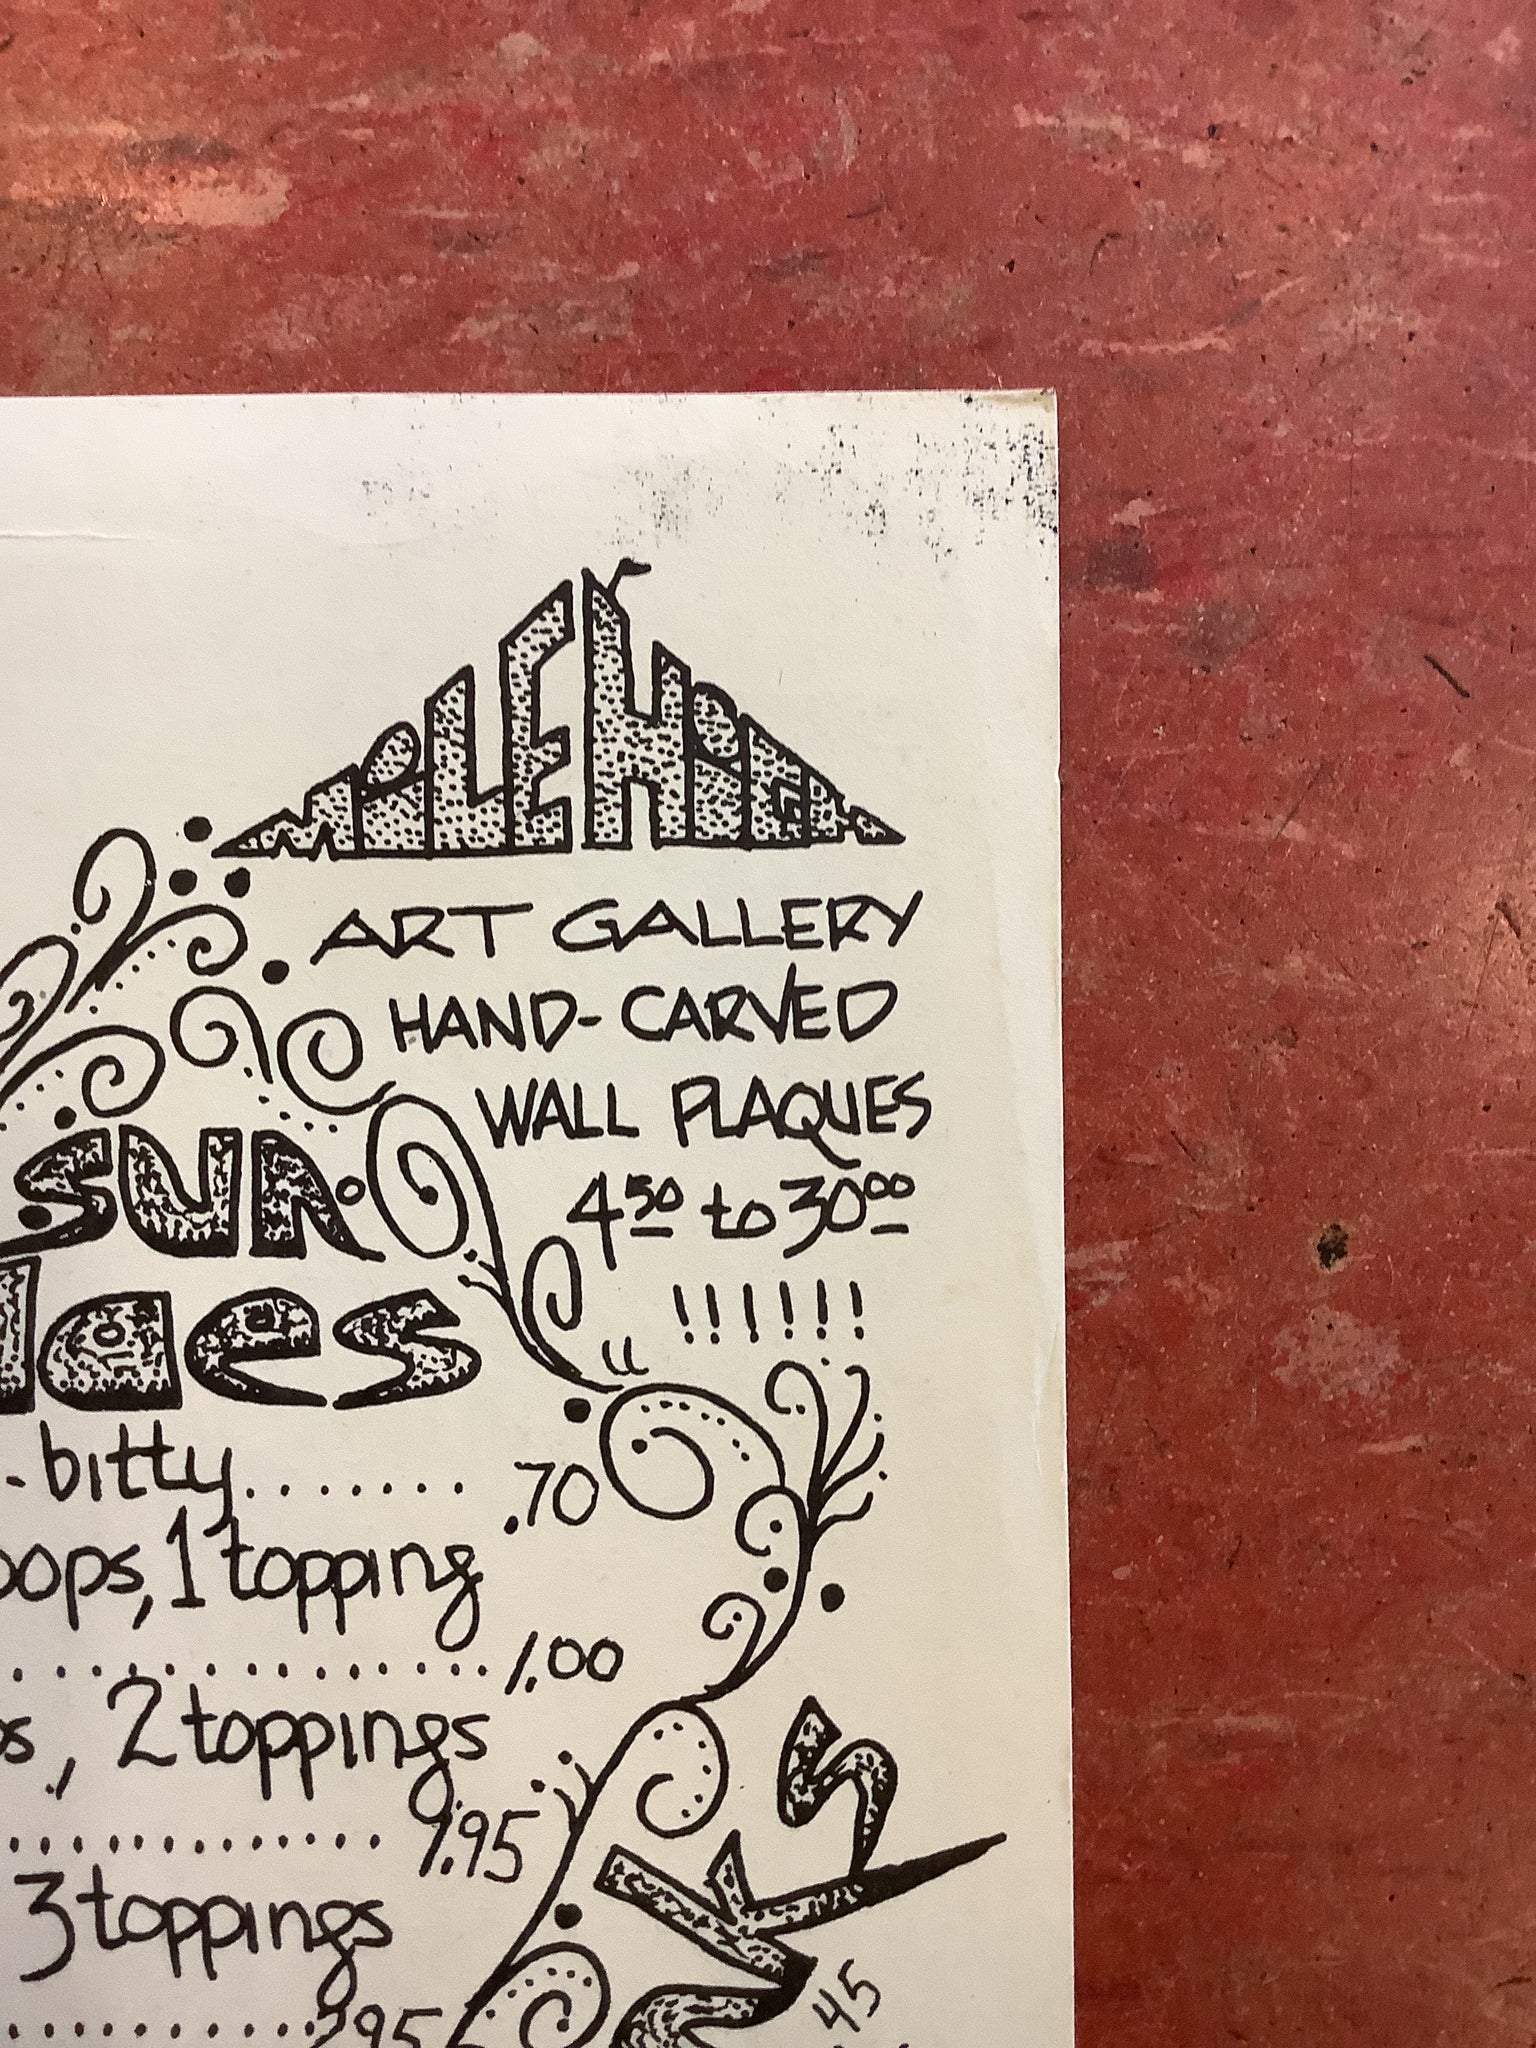 MOLEHOLE
ART GALLERY
HAND-CARVED
WALL PLAQUES
4 50 to 30 00
!!!!!!
sun
daes
-bitty....... .70
oops, 1 topping
................ 1.00
os, 2 toppings
.............. 1.95
3 toppings
............. 2.95
45